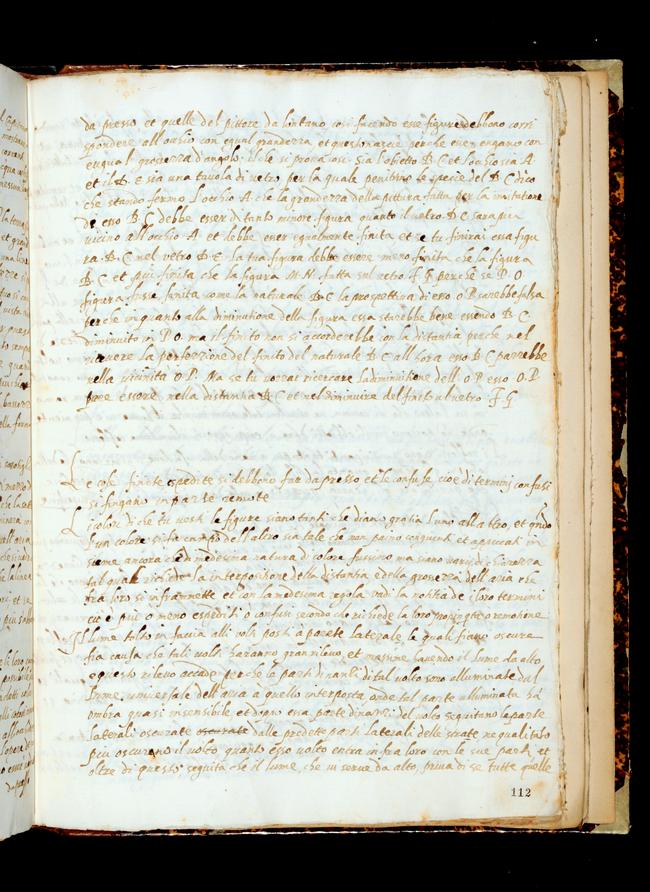 da presso et quelle del pittore da lontano, così facendo esse figure debbono corri
spondere all'occhio con equal grandezza, et questo nasce perche evvengano con
equal grossezza d'angolo. il che si prova così. Sia l'obietto B.C et l'occhio sia A.
et il D. E sia una tavola di vetro per la quale penetrino le specie del B.C dico
che stando fermo l'occhio A. che la grandezza della pittura fatta per la imitatione
de esso B. C debbe esser di tanto minore figura quanto il vetro D.E sara piu
vicino all'occhio A. et debbe esser equalmente finita et se tu finirai essa figu
ra B.C nel vetro D.E la tua figura debbe essere meno finita che la figura
B.C et piu finita che la figura M.N. fatta sul vetro F.G perche se P.O
figura fusse finita come la naturale B.C la prospettiva di esso o P sarebbe falsa
perche in quanto alla diminutione della figura essa starebbe bene essendo B.C
diminuito in P.O. ma il finito non si accorderebbe con la distantia perche nel
ricevere la perfezzione del finito del naturale B.C all'hora esso B.C parrebbe
nella vicinita O.P. Ma se tu vorrai ricercare la diminuitione dell'O.P esso O.P
pare essere nella distantia B.C et nel diminuire del finito al vetro F.G
Le cose finite espedite si debbono far da presso et le confuse cioe di termini confusi
si fingano in parte remote
I colori di che tu vesti le figure siano tanti che diano gratia l'uno all'altro, et quando
l'un colore si fa campo dell'altro sia tale che non paino congiunti et appiccati in
sieme ancora che di medesima natura di colore fussino ma siano varii di chiarezza
tal quale richiede la interpositione della distantia e della grossezza dell'aria che
fra loro si infrannette et con la medesima regola vadi la notitia de i loro termini
cioe piu o meno espediti o confusi secondo che richiede la loro propinquita o remotione
Il lume tolto in faccia alli volti posti a parete laterale le quali fiano oscure
fia causa che tali volti haranno gran rilievo, et massime havendo il lume da alto
e questo rilievo accade perche le parti dinanti di tal volto sono illuminate dal
lume universale dell'aria a quello interposta, onde tal parte illuminata ha
ombra quasi insensibile et dopo essa parte dinanzi del volto seguitano le parte
laterali oscurate oscurate dalle predette parti laterali delle strade ne quali tanto
piu oscurano il volto quanto esso volto entra infra loro con le sue parti, et
oltre di questo seguita che il lume, che vi serve da alto, priva di se tutte quelle
112